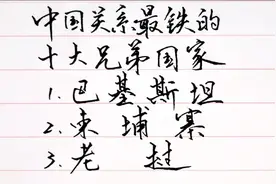 中国关系最铁的
十大兄弟国家
1.巴基斯坦
2.柬埔寨
3.老挝